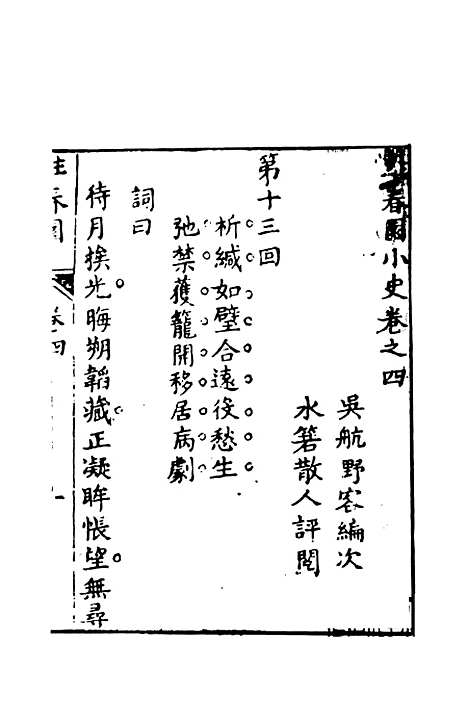 駐春園小史卷之四
吳航野客編次
水箬散人評閱
第十三回
析緘如璧合遠後愁生
弛禁獲籠開移居病劇
詞曰
待月挨光。晦朔韜藏。正凝眸悵望。無尋
駐春園 卷四 一